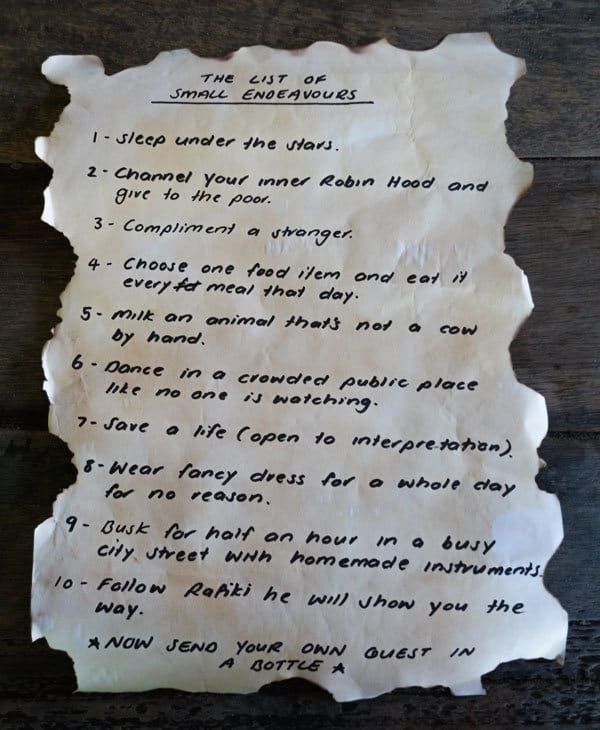 THE LIST OF
SMALL ENDEAVOURS
1 - Sleep under the stars.
2 - Channel your inner Robin Hood and
give to the poor.
3 - Compliment a stranger.
4 - Choose one food item and eat it
every meal that day.
5 - Milk an animal that's not a cow
by hand.
6 - Dance in a crowded public place
like no one is watching.
7 - Save a life (open to interpretation).
8 - Wear fancy dress for a whole day
for no reason.
9 - Busk for half an hour in a busy
city street with homemade instruments.
10 - Follow Rafiki he will show you the
way.
★ NOW SEND YOUR OWN QUEST IN
A BOTTLE ★